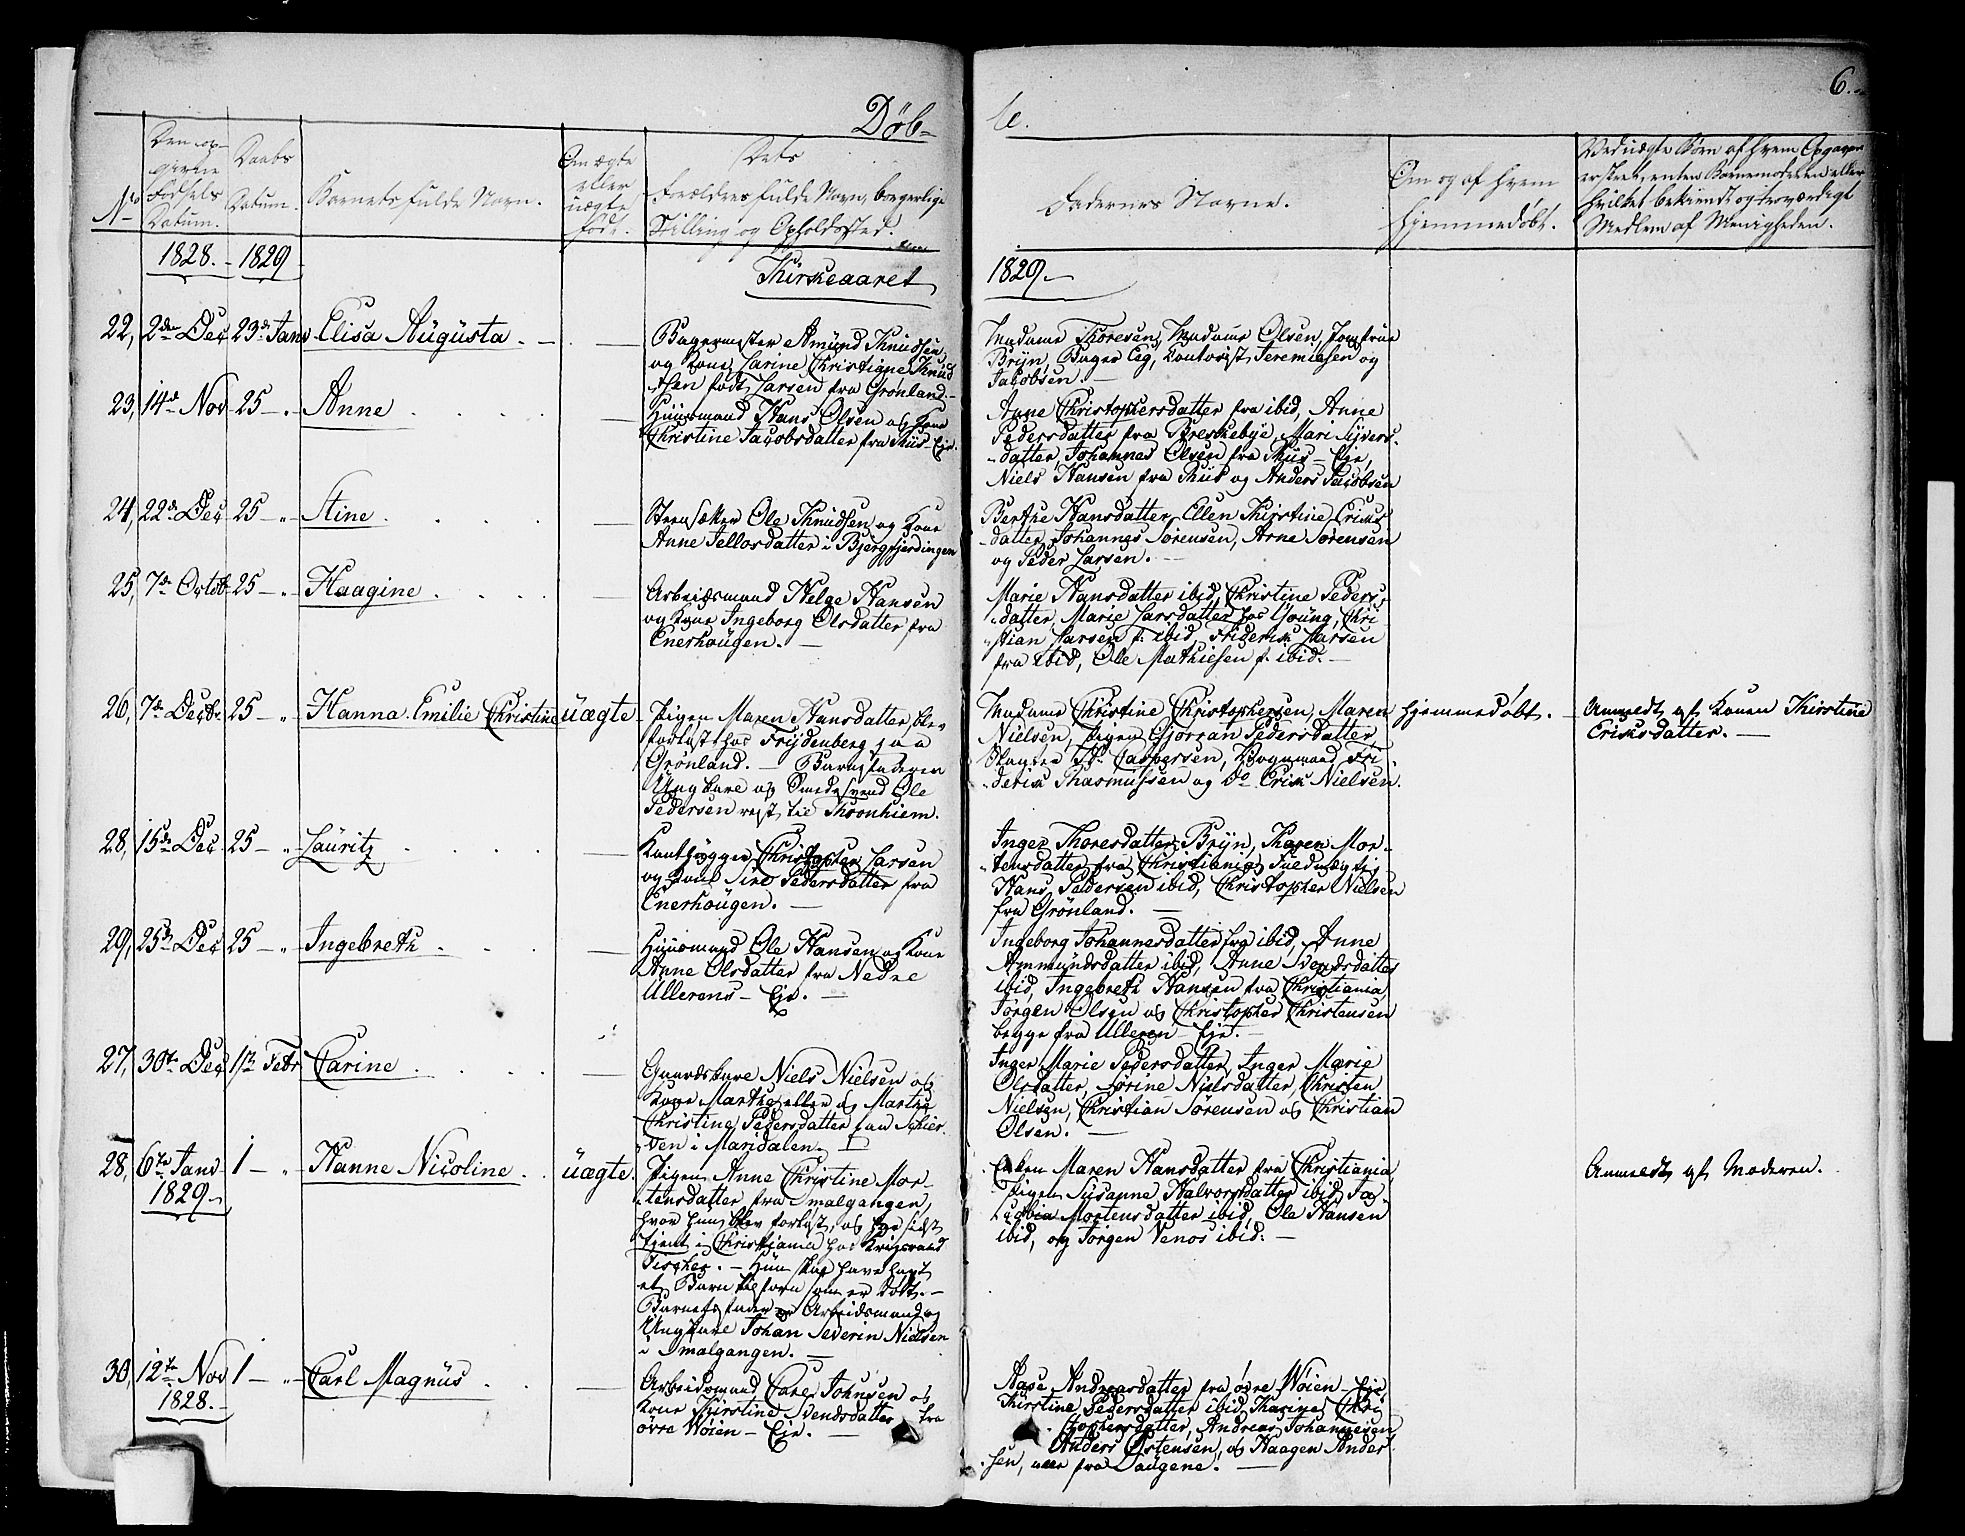 Døb-
te.
6.
No
Den op-
givne
Fødsels
Datum.
Daabs
Datum.
Barnets fulde Navn.
Om ægte
eller
uægte
født.
Dets
Forældres fulde Navn, borgerlige
Stilling og Opholdssted.
Faddernes Navne.
Om og af hvem
hjemmedøbt.
Ved uægte Børn af hvem Opgaven
er skeet, enten Barnemoderen eller
hvilket bekiendt og troværdigt
Medlem af Menigheden.
1828. - 1829
Kirkeaaret
1829.
22, 2den Dec 23de Janv Elisa Augusta
Bagermester Amund Knudsen
og Kone Karine Christiane Knud
-sen født Larsen fra Grønland.
Madame Thoresen, Madame Olsen, Jomfrue
Bryn, Bager Eeg, Contorist Jeremiesen og
Jacobsen.
23, 14d Nov 25 - " - Anne
Huusmand Hans Olsen og Kone
Christine Jacobsdatter fra Riis-Eje.
Anne Christophersdatter fra ibid, Anne
Pedersdatter fra Breskebye, Mari Syvers-
datter, Johannes Olsen fra Riis-Eje,
Niels Hansen fra Riis og Anders Jacobsen
24, 22d Dec 25 - " - Stine
Ole Knudsen og Kone
Anne Tellosdatter i Bjergfjerdingen
Berthe Hansdatter, Ellen Kirstine Eriks-
datter, Johannes Sørensen, Arne Sørensen
og Peder Larsen.
25, 7de Octob 25 - " - Haagine
Arbeidsmand Helge Hansen
og Kone Ingeborg Olsdatter fra
Enerhaugen.
Marie Hansdatter ibid, Christine Peders-
datter, Marie Larsdatter hos Young, Chri-
stian Larsen f. ibid, Friderik Larsen
fra ibid, Ole Mathiesen f. ibid.
26, 7de Decbr 25 - " - Hanna Emilie Christine uægte
Pigen Maren Hansdatter blev
forløst hos Frydenberg paa
Grønland. - Barnefaderen
Ungkarl og Smedesvend Ole
Pedersen reist til Throndhiem.
Madame Christine Christophersen, Maren
Nielsen, Pigen Gjørran Pedersdatter,
Slagter Caspersen, Vognmand Fri-
derik Rasmussen og Do Erik Nielsen.
hjemmedøbt.
Anmeldt af Konen Kirstine
Eriksdatter.
28, 15de Dec 25 - " Lauritz
Christopher Larsen
og Kone Sine Pedersdatter fra
Enerhaugen.
Inger Thoresdatter Bryn, Karen Mor-
tensdatter fra Christiania, Fuldmægtig
Hans Pedersen ibid, Christopher Nielsen
fra Grønland.
29, 25de Dec 25 - " - Ingebreth
Huusmand Ole Hansen og Kone
Anne Olsdatter fra Nedre
Ullerens-Eje.
Ingeborg Johannesdatter fra ibid, Anne
Ammundsdatter ibid, Anne Svendsdatter
ibid, Ingebreth Hansen fra Christiania
Jørgen Olsen og Christopher Christensen
begge fra Ulleren-Eje.
27, 30te Dec 1ste Febr Carine
Gaardskarl Niels Nielsen og
Kone Marthe eller og Marthe
Christine Pedersdatter fra Skier-
ven i Maridalen.
Inger Marie Pedersdatter, Inger Marie
Olsdatter, Sørine Nielsdatter, Christen
Nielsen, Christian Sørensen og Christian
Olsen.
28, 6te Janv 1 - " - Hanne Nicoline uægte.
1829.
Pigen Anne Christine Mor-
tensdatter fra Smalgangen,
hvor hun blev forløst, og har sidst
tjent i Christiania hos Krigsraad
Fischer. - Hun skal have havt
et Barn tilforn som er dødt. -
Barnefader er Arbeidsmand og
Ungkarl Johan Severin Nielsen
i Smalgangen.
Enken Maren Hansdatter fra Christiania,
Pigen Susanne Halvorsdatter ibid, Ja-
cobia Mortensdatter ibid, Ole Hansen
ibid, og Jørgen Venos ibid.
Anmeldt af Moderen.
30, 12te Nov 1 - " - Carl Magnus
1828.
Arbeidsmand Carl Johnsen og
Kone Kirstine Svendsdatter fra
øvre Wøien-Eje.
Aase Andreasdatter fra øvre Wøien-Eje,
Kirstine Pedersdatter ibid, Karine Chri
stophersdatter, Andreas Johannesen
Anders Østensen, og Haagen Ander
sen, alle fra Saugene.